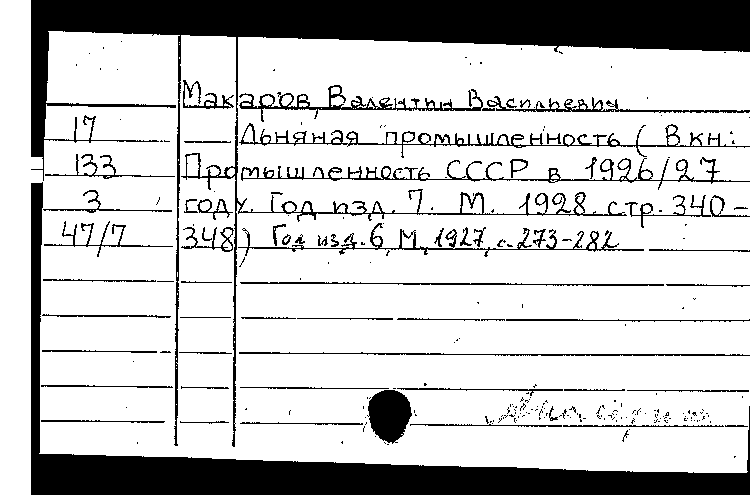 Макаров, Валентин Васильевич
17 Льняная промышленность ( В кн:
133 Промышленность СССР в 1926/27
3 году. Год изд. 7. М. 1928. стр. 340-
47/7 348) Год изд. 6, М., 1927, с. 273-282